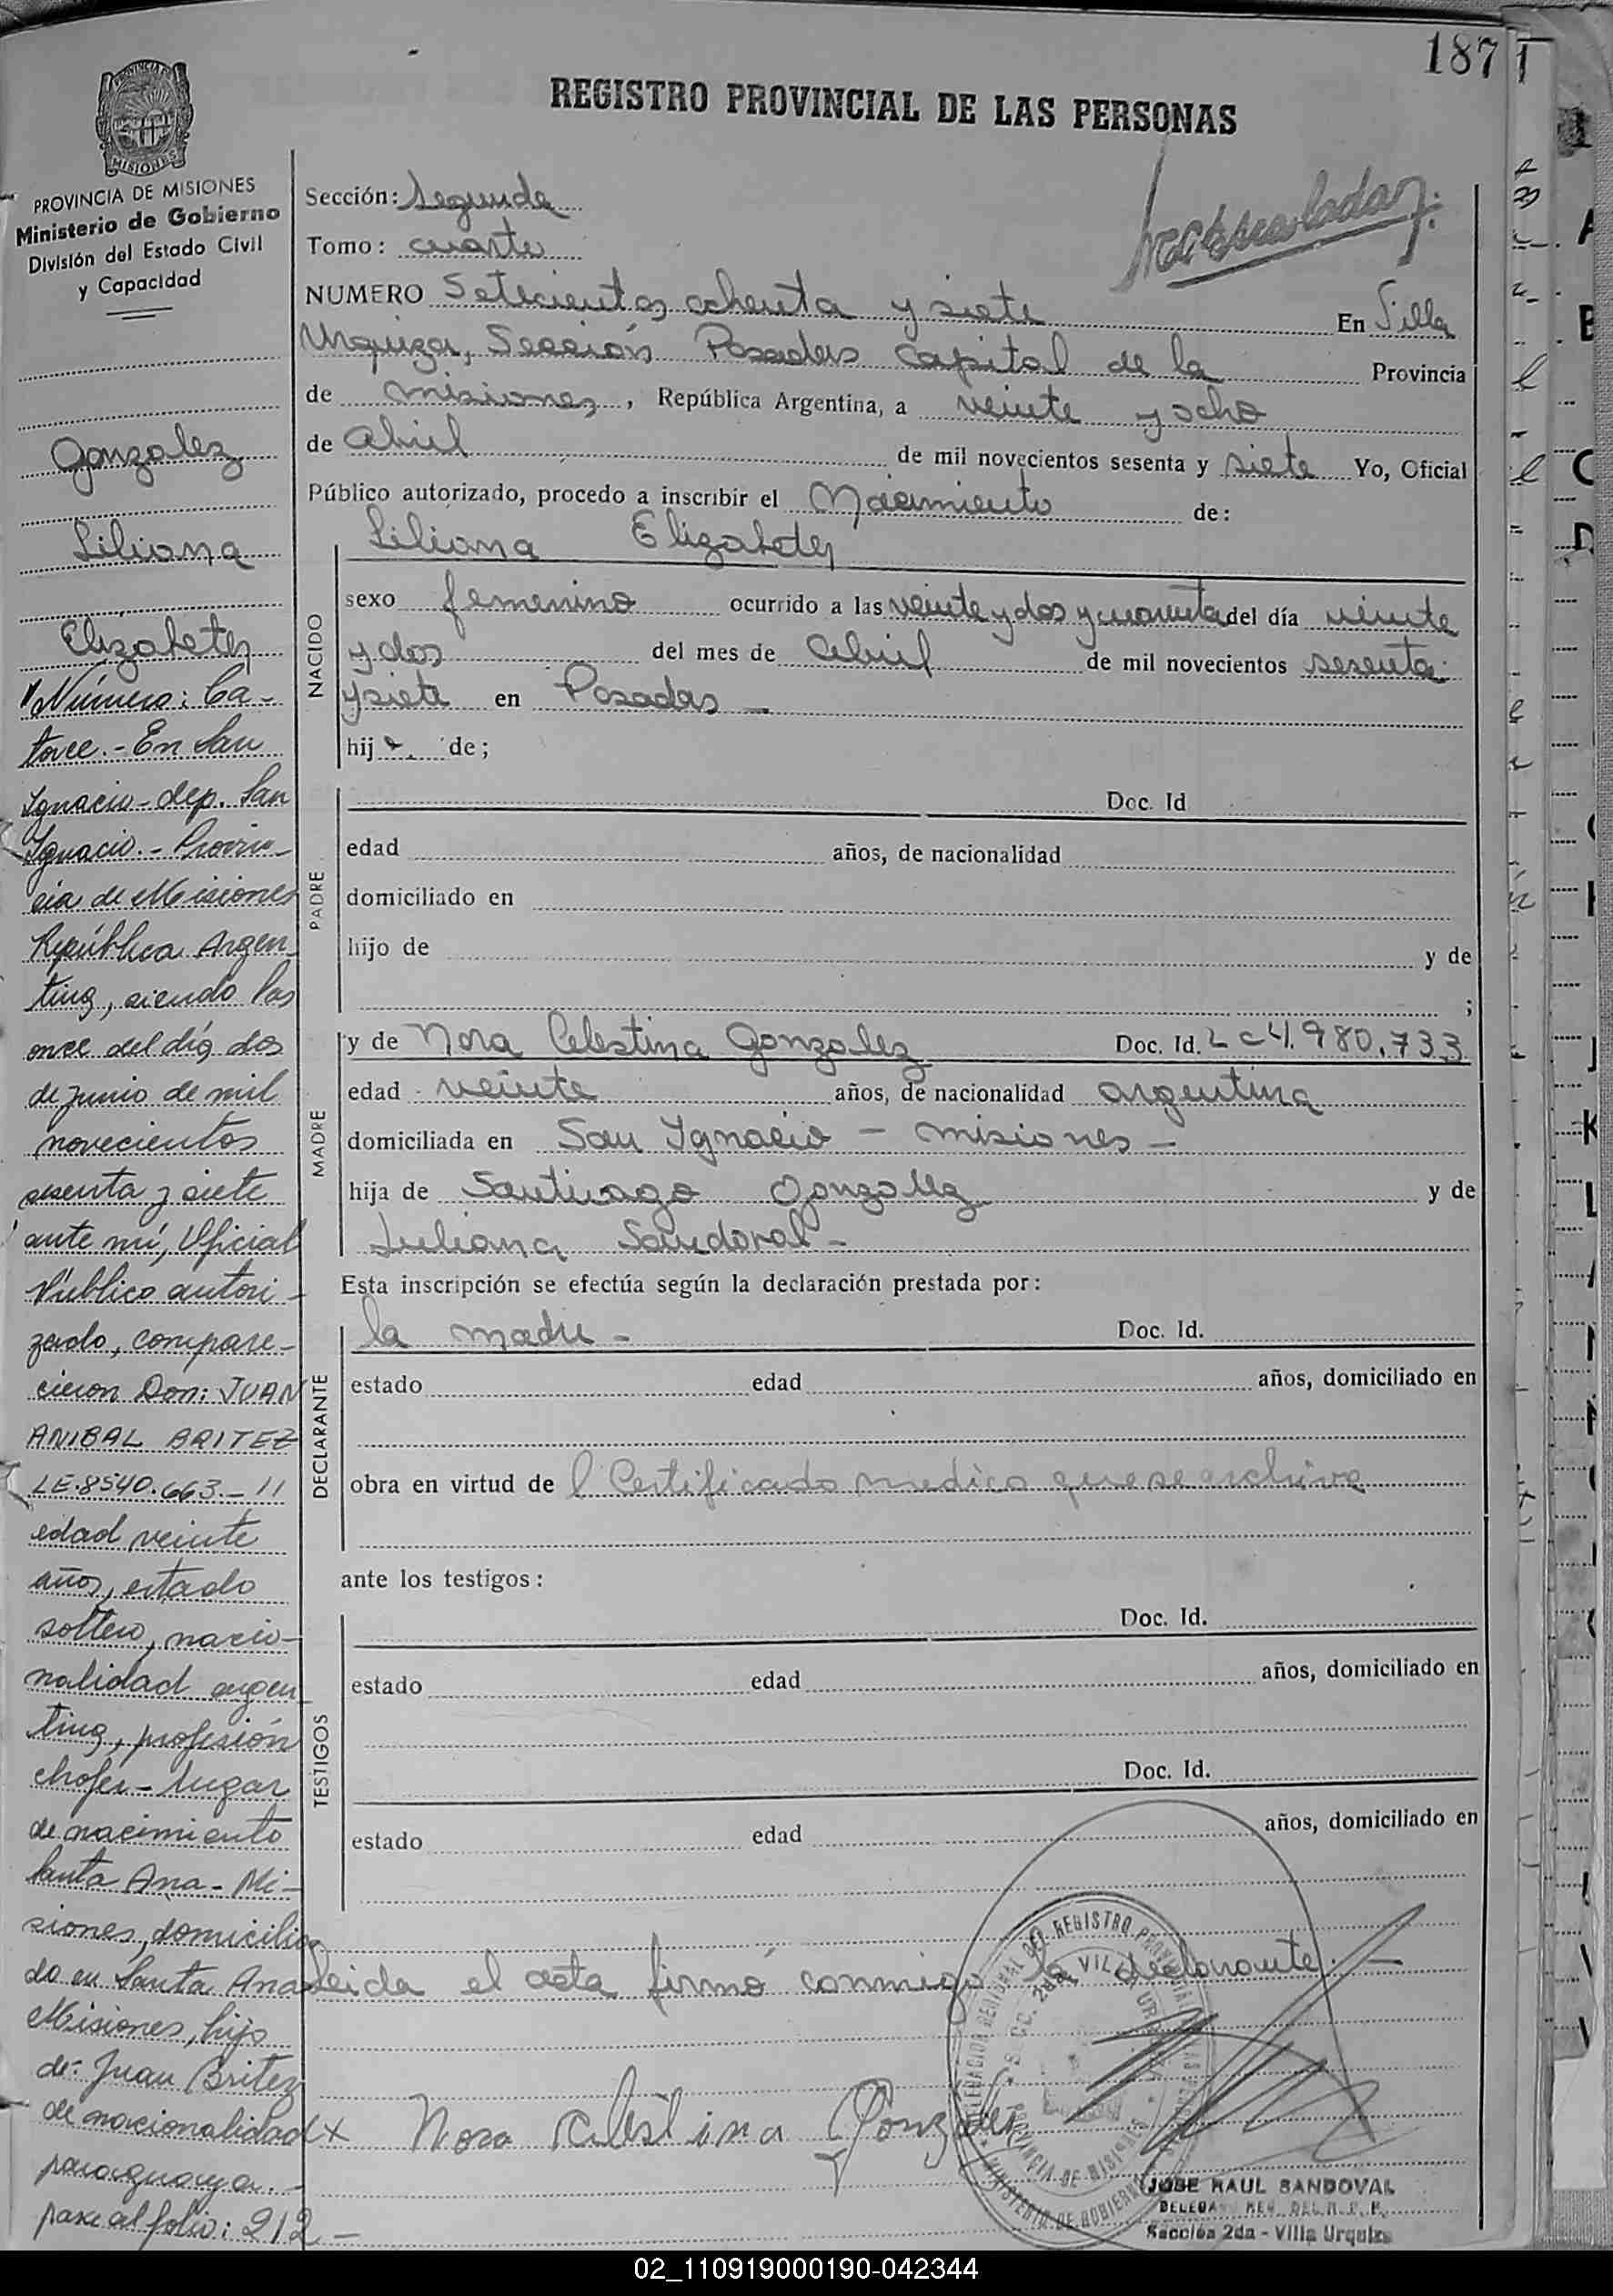 187
REGISTRO PROVINCIAL DE LAS PERSONAS
PROVINCIA DE MISIONES
Ministerio de Gobierno
División del Estado Civil
y Capacidad
Gonzalez
Liliana
Elizabeth
Número: Ca-
torce.- En San
Ignacio- dep. San
Ignacio.- Provin-
cia de Misiones
República Argen-
tina, siendo las
once del día dos
de junio de mil
novecientos
sesenta y siete
ante mí, Oficial
Público autori-
zado, compare-
cieron Don: JUAN
ANIBAL BRITEZ
LE.8540.663.-11
edad veinte
años, estado
soltero, nacio-
nalidad argen-
tina, profesión
chofer- lugar
de nacimiento
Santa Ana- Mi-
siones, domicilia
do en Santa Ana
Misiones, hijo
de: Juan Britez
de nacionalidad
paraguaya.-
pase al folio: 212-
Sección: Segunda
Tomo: cuarto
NUMERO Setecientos ochenta y siete En Villa
Urquiza, Sección Posadas capital de la Provincia
de misiones, República Argentina, a veinte y ocho
de abril de mil novecientos sesenta y siete Yo, Oficial
Público autorizado, procedo a inscribir el Nacimiento de:
NACIDO
Liliana Elizabeth
sexo femenino ocurrido a las veinte y dos y cuarenta del día veinte
y dos del mes de abril de mil novecientos sesenta
y siete en Posadas -
hija de;
PADRE
Doc. Id
edad años, de nacionalidad
domiciliado en
hijo de y de
;
MADRE
y de Nora Celestina Gonzalez Doc. Id. LC 4.980.733
edad veinte años, de nacionalidad argentina
domiciliada en San Ignacio - misiones -
hija de Santiago Gonzalez y de
Juliana Sandoval -
Esta inscripción se efectúa según la declaración prestada por:
DECLARANTE
la madre - Doc. Id.
estado edad años, domiciliado en
obra en virtud de l Certificado medico que se archiva
ante los testigos:
TESTIGOS
Doc. Id.
estado edad años, domiciliado en
Doc. Id.
estado edad años, domiciliado en
Leida el acta firmó conmigo la declarante -
x Nora Celestina Gonzalez
JOSE RAUL SANDOVAL
Sección 2da - Villa Urquiza
02_110919000190-042344